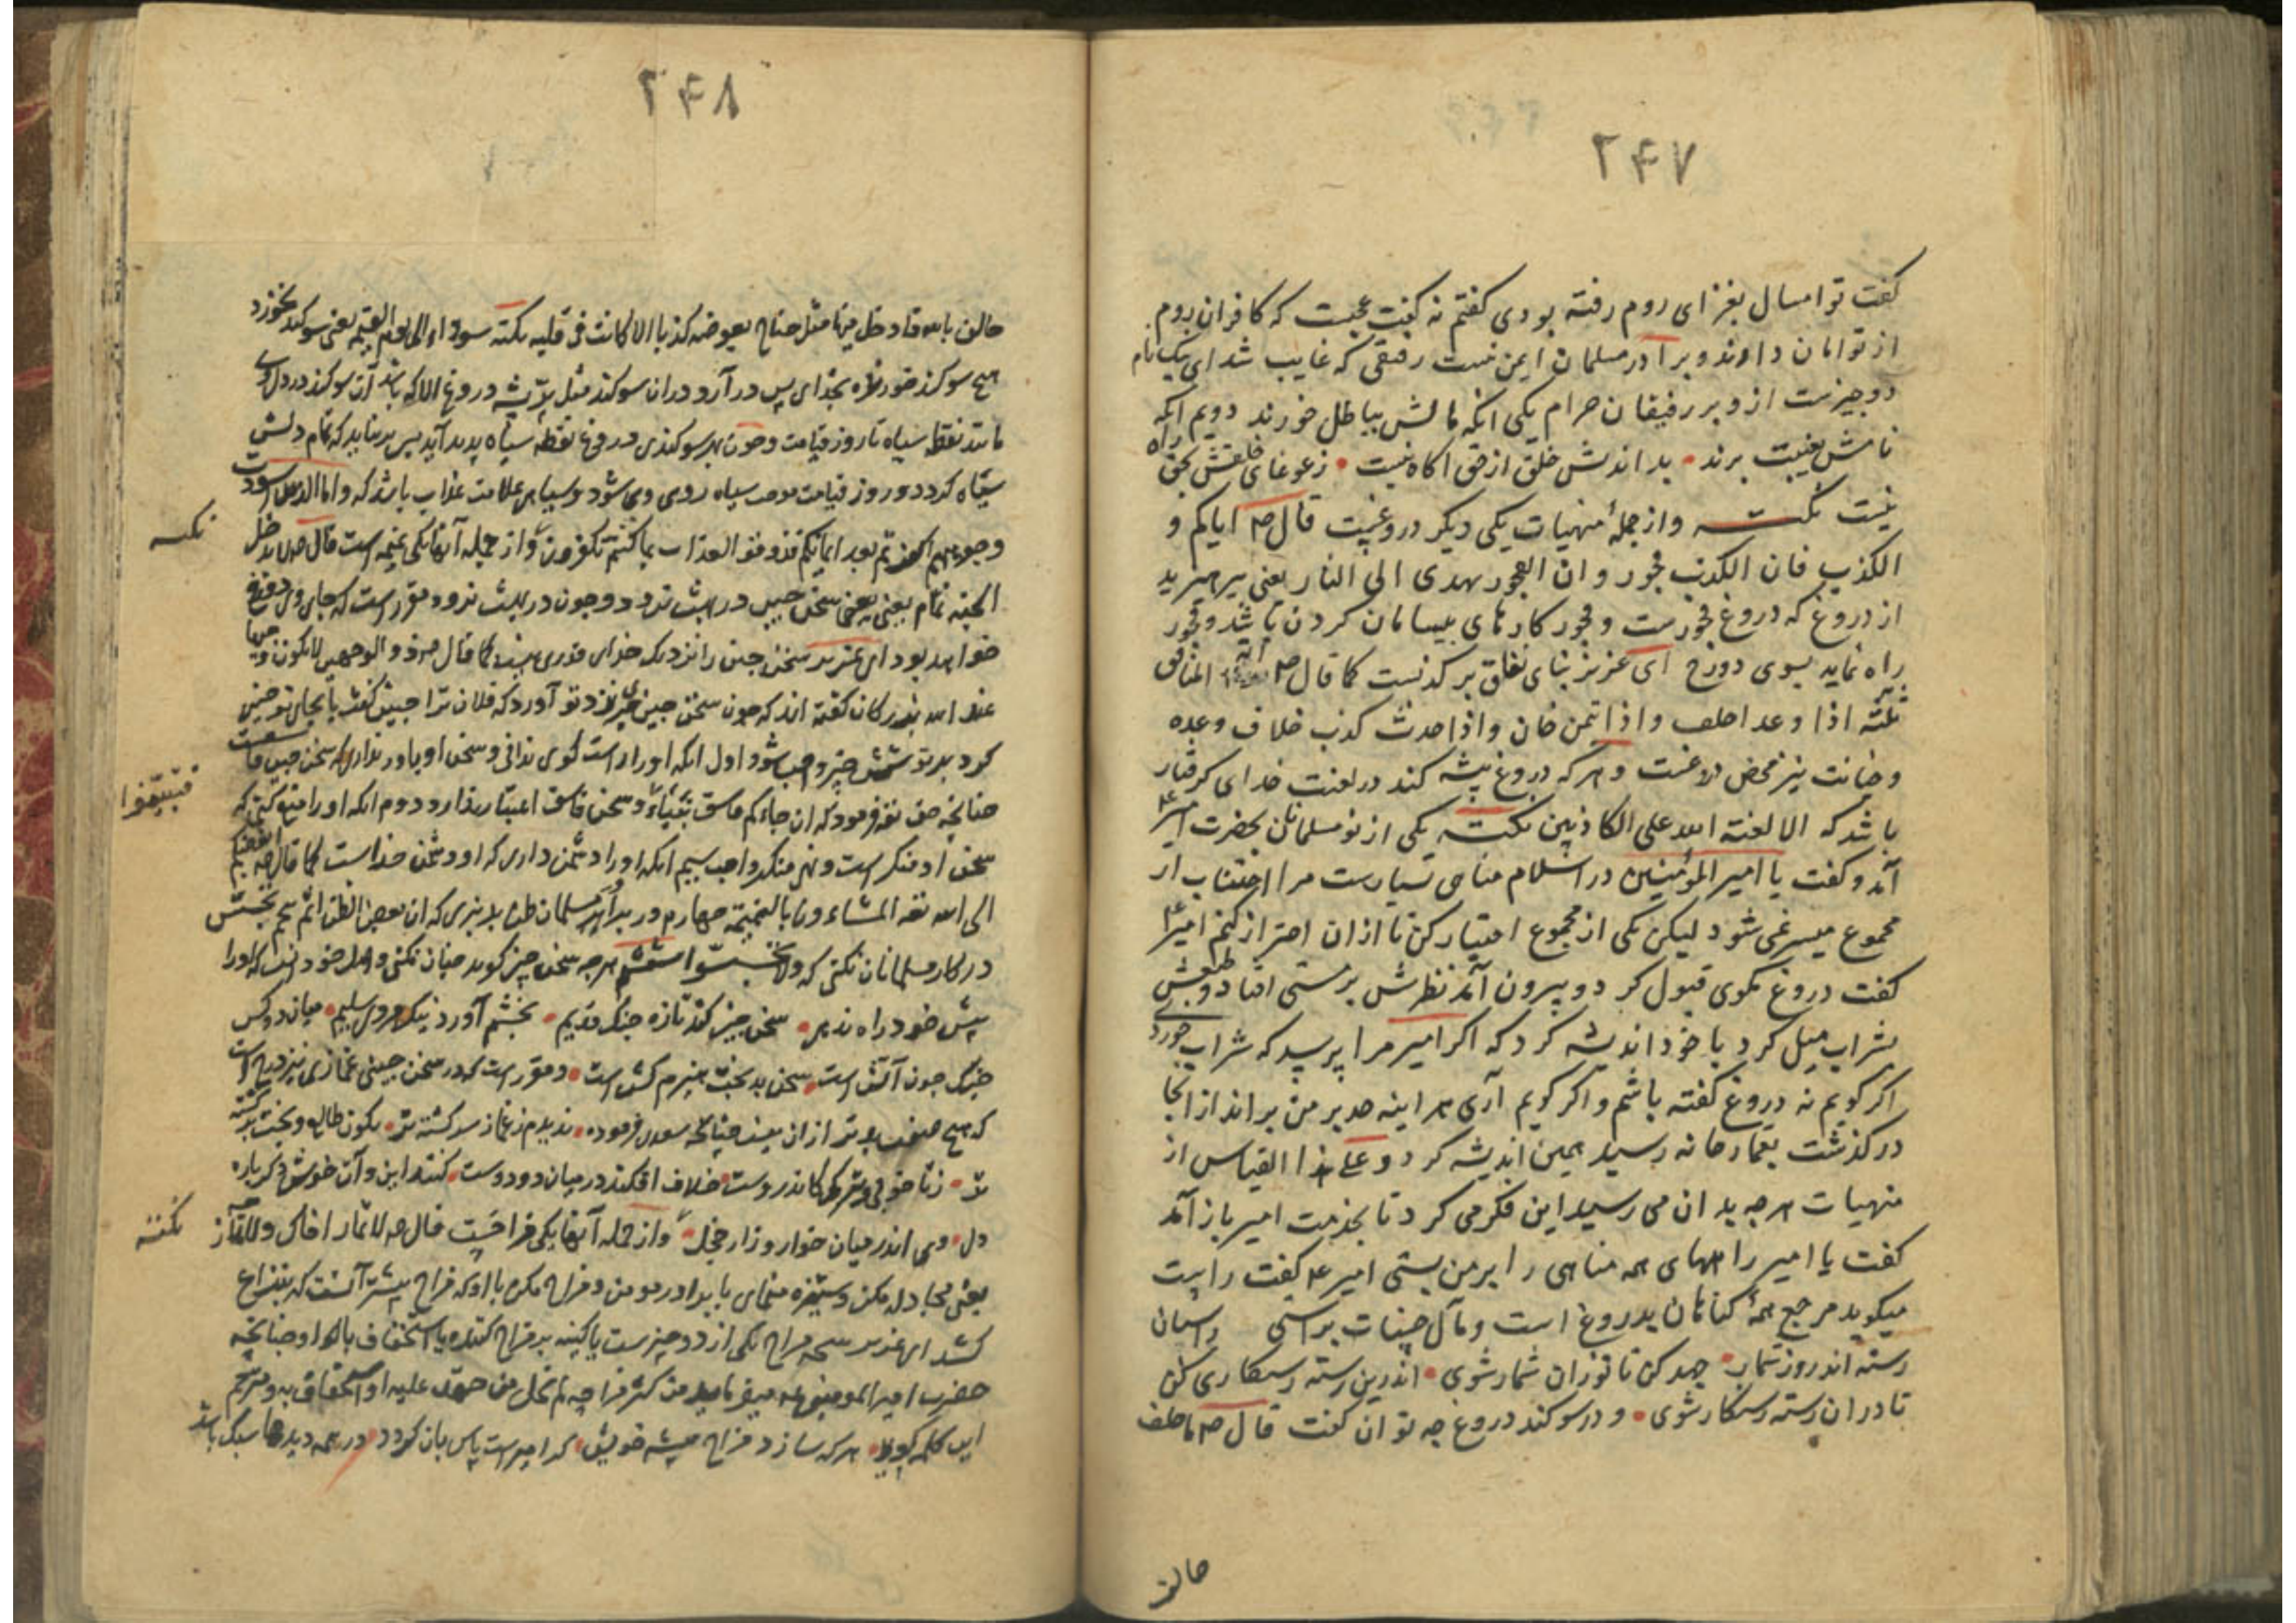 ۲۴۷
کفت تو امسال بغزای روم رفته بودی کفتم نه کفت عجبت که کافران روم
از تو امان دارند و برادر مسلمان ایمن نیست رفیقی که غایب شد ای نیک نام
دو چیزست ازو بر رفیقان حرام یکی انکه مالش بباطل خورند دویم انکه
نامش بغیبت برند بد اندیش خلق از حق اکاه نیست زغوغای خلقش بحق راه
نیست نکته و از جملهٔ منهیات یکی دیکر دروغیست قال ص ایاکم و
الکذب فان الکذب فجور و ان الفجور یهدی الی النار یعنی بپرهیزید
از دروغ که دروغ فجورست و فجور کارهای بیسامان کردن باشد و فجور
راه نماید بسوی دوزخ ای عزیز بنای نفاق بر کذبست کما قال ص آیة المنافق
ثلثه اذا وعد اخلف و اذا اتمن خان و اذا حدث کذب خلاف وعده
و خیانت نیز محض دروغست و هر که دروغ پیشه کند در لعنت خدای کرفتار
باشد که الا لعنة الله علی الکاذبین نکته یکی از نو مسلمانان بحضرت امیر ع
آمد و کفت یا امیر المؤمنین در اسلام مناهی بسیارست مرا اجتناب از
مجموع میسر نمی شود لیکن یکی از مجموع اختیار کن تا ازان احتراز کنم امیر ع
کفت دروغ مکوی قبول کرد و بیرون آمد نظرش بر مستی افتاد و طبعش
بشراب میل کرد با خود اندیشه کرد که اکر امیر مرا پرسد که شراب خوردی
اکر کویم نه دروغ کفته باشم و اکر کویم آری هر اینه حد بر من براند از انجا
در کذشت بقمار خانه رسید همین اندیشه کرد و علی هذا القیاس از
منهیات هر چه بدان می رسید این فکر می کرد تا بخدمت امیر باز آمد
کفت یا امیر راههای همه مناهی را بر من بستی امیر ع کفت راست
میکوید مرجع همهٔ کناهان بدروغ است و مآل حسنات براستی راستان
رسته اند روز شمار جهد کن تا تو زان شمار شوی اندرین رسته رستکاری کن
تا دران رسته رستکار شوی و در سوکند دروغ چه توان کفت قال ص ما حلف
حالف
۲۴۸
حالف بالله فادخل فیها مثل جناح بعوضه کذبا الا کانت فی قلبه نکته سودا الی یوم القیمه یعنی سوکند نخورد
هیچ سوکند خورنده بخدای پس در آرد دران سوکند مثل پر پشه دروغ الا که باشد آن سوکند در دل وی
مانند نقطه سیاه تا روز قیامت و چون بهر سوکندی دروغ نقطه سیاه پدید آید پس بر نیاید که تمام دلش
سیاه کردد و روز قیامت موجب سیاه روی وی شود و سیاهی علامت عذاب باشد که و اما الذین اسودت
وجوههم اکفرتم بعد ایمانکم فذوقوا العذاب بما کنتم تکفرون و از جمله آنها یکی نمیمه است قال ص لا یدخل
نکته
الجنه نمام یعنی سخن چین در بهشت نرود و چون در بهشت نرود مقرر است که جای وی دوزخ
خواهد بود ای عزیز سخن چین را نزدیک خدای قدری نیست کما قال ص ذو الوجهین لا یکون وجیها
عند الله بزرکان کفته اند که چون سخن چین خبری نزد تو آورد که فلان ترا چنین کفت یا بجای تو چنین
کرد بر تو شش چیز واجب شود اول انکه او را راست کوی ندانی و سخن او باور نداری که سخن چین فاسقست
چنانچه حق تعه فرمود که ان جاءکم فاسق بنباء و سخن فاسق اعتبار ندارد دوم انکه او را منع کنی که
فتبینوا
سخن او منکر است و نهی منکر واجب سیم انکه او را دشمن داری که او دشمن خداست کما قال ص ابغضکم
الی الله تعه المشاءون بالنمیمة چهارم در برادر مسلمان ظن بد نبری که ان بعض الظن اثم پنجم تجسس
در کار مسلمانان نکنی که ولا تجسسوا ششم هر چه سخن چین کوید عیان نکنی و اصل خود انست که او را
پیش خود راه ندهی سخن چین کند تازه جنک قدیم بخشم آورد نیک مرد سلیم میان دو کس
جنک چون آتش است سخن چین بدبخت هیزم کش است و مقرر است که در سخن چینی غمازی نیز درج است
که هیچ صنف بدتر ازان نیست چنانچه سعدی فرموده ندیدم زغماز سرکشته تر نکون طالع و بخت برکشته
تر زنا خوبی که اندروست خلاف افکند در میان دو دوست کنند این و آن خوش دکر باره
دل وی اندر میان خوار و زار و خجل و از جمله آنها یکی مزاحست قال ص لا تمار اخاک ولا تمازحه
نکته
یعنی مجادله مکن و ستیزه منمای با برادر مومن و مزاح مکن با او که مزاح بیشتر آنست که بنزاع
کشد ای عزیز نتیجه مزاح یکی از دو چیزست یا کینه بر مزاح کننده یا استخفاف باو چنانچه
حضرت امیر المومنین ع میفرماید من کثر مزاحه لم یخل من حقد علیه او استخفاف به و مترجم
این کلمه کوید هر که سازد مزاح پیشه خویش کر امیر است پاس بان کردد در همه دیدها سبک باشد